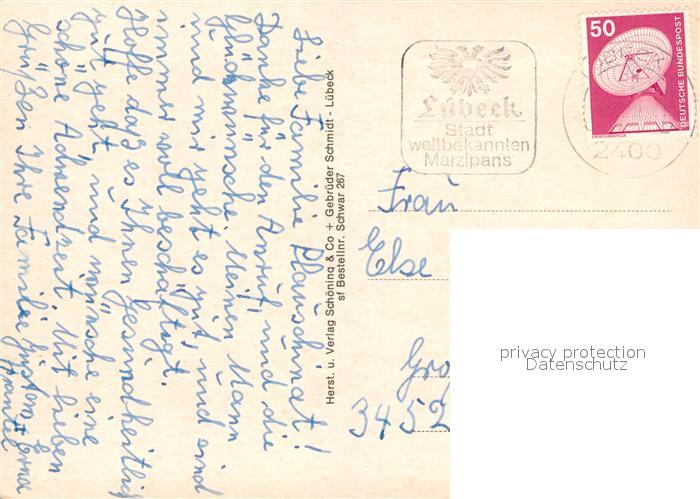 Liebe Familie Plauschinat!
Danke für den Anruf, und die
Glückwünsche. Meinen Mann
und mir geht es gut, und sind
immer voll beschäftigt.
Hoffe daß es Ihnen gesundheitlich
gut geht, und wünsche eine
schöne Adwendzeit. Mit lieben
Grüßen Ihre Familie Gustav + Erna
Herst. u. Verlag Schöning & Co + Gebrüder Schmidt - Lübeck
sf Bestellnr. Schwar 267
Lübeck
Stadt
weltbekannten
Marzipans
2400
50
DEUTSCHE BUNDESPOST
ERDEFUNKSTELLE
Frau
Else
Gro
3452
privacy protection
Datenschutz